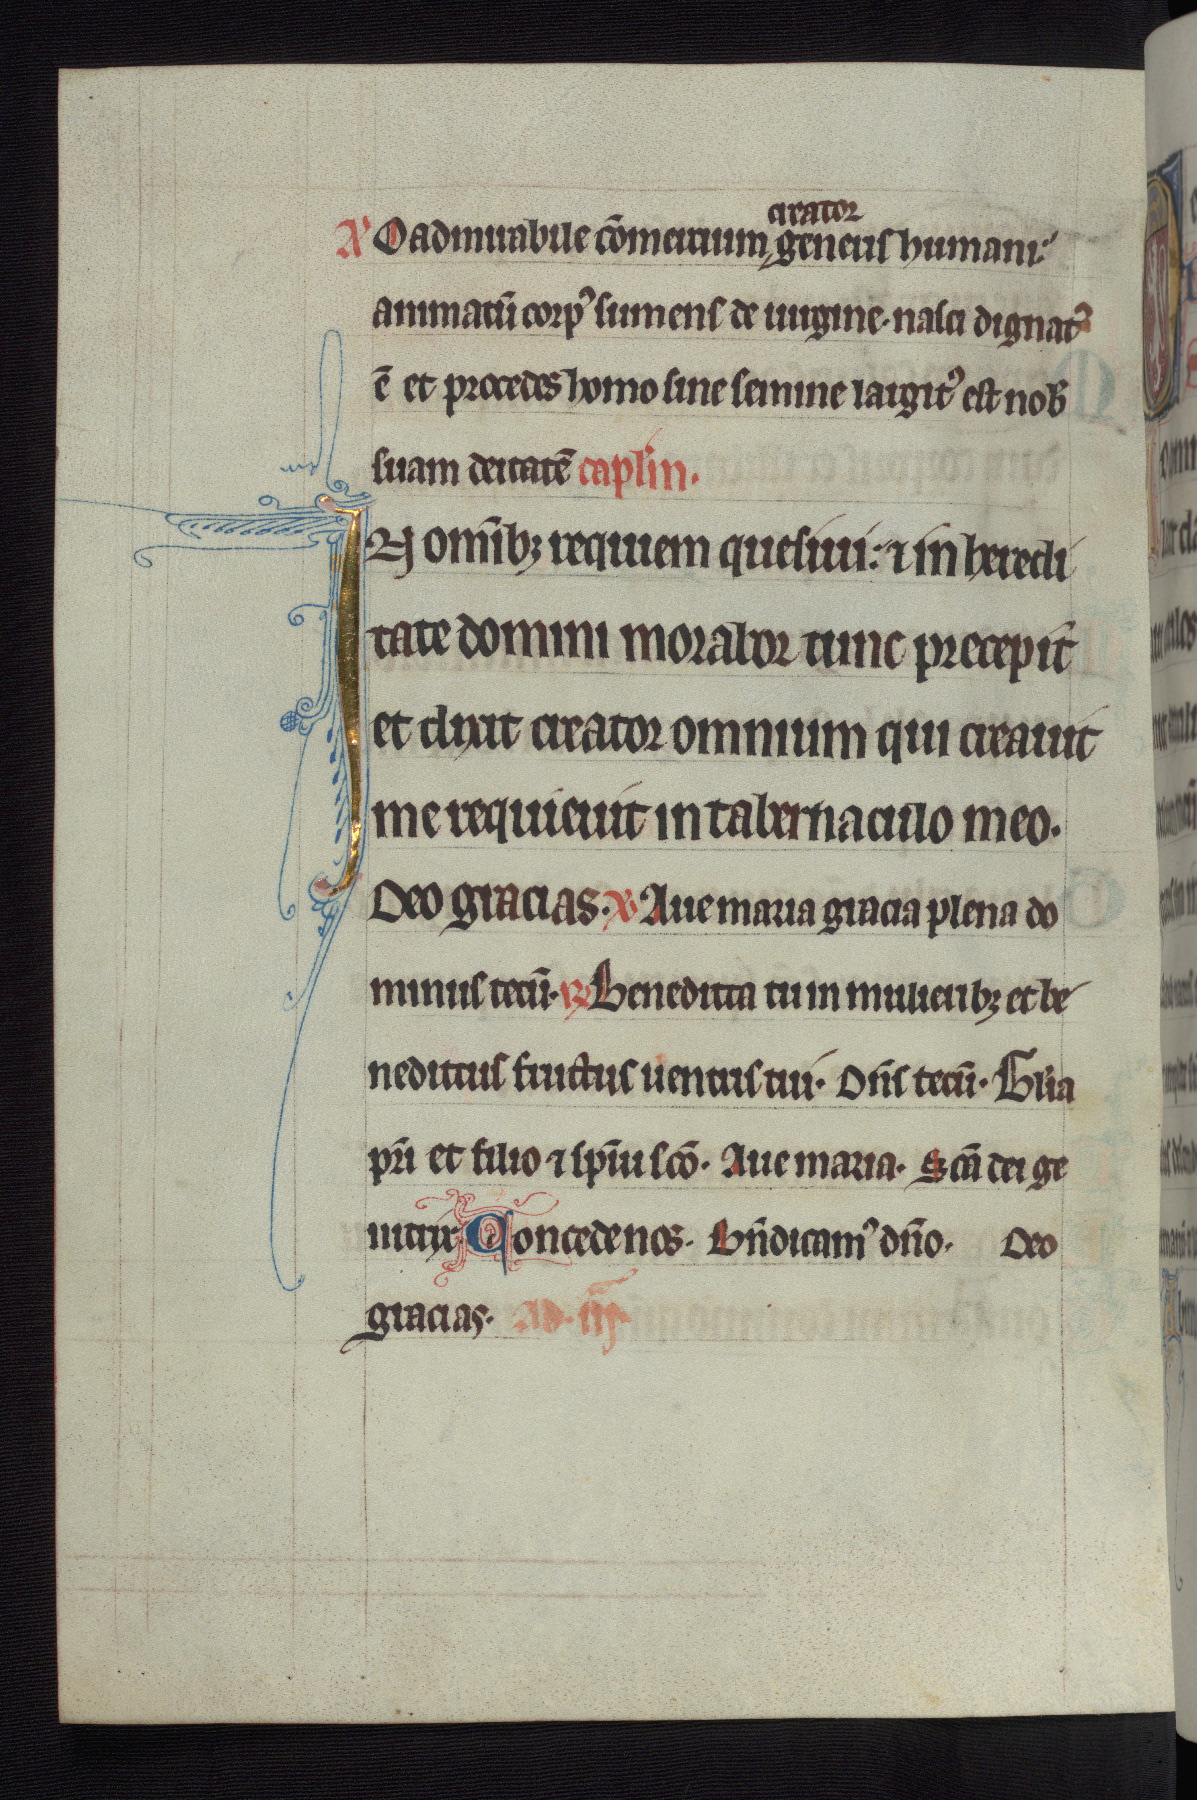 creator
A͞ O admirabile cōmercium generis humani:
animatū corpꝰ sumens de uirgine. nasci dignatꝰ
ē et procedēs homo sine semine largitꝰ est nob̄
suam deitatē caplm̄.
IN omībꝫ requiem quesiui: ⁊ in heredi
tate domini morabor tunc precepit
et dixit creator omnium qui creauit
me requieuit in tabernaculo meo.
Deo gracias. ℣ Aue maria gracia plena do
minus tecū. ℟ Benedicta tu in mulieribꝫ et be
nedictus fructus uentris tui. Dn̄s tecū. Gl̄ia
pr̄i et filio ⁊ sp̄iui scō. Aue maria. Sc̄a dei ge
nitrix Concede nos. Bn̄dicamꝰ dn̄o. Deo
gracias. ad. iij